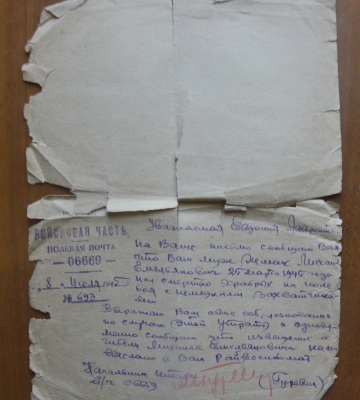 ВОЙСКОВАЯ ЧАСТЬ
ПОЛЕВАЯ ПОЧТА
—06669—
"8" Июля 1945
№ 693
Уважаемая Евдокия
на Ваше письмо сообщаю Вам
что Ваш муж Михаил
Емельянович 25 марта 1945 года
пал смертью храбрых на поле
боя с немецкими захватчиками
Выражаю Вам свое соболезнование
по случаю этой утраты и одновре-
менно сообщаю что извещение о
гибели Михаила Емельяновича нами
выслано в Ваш Райвоенкомат
Начальник штаба
в/ч 06669